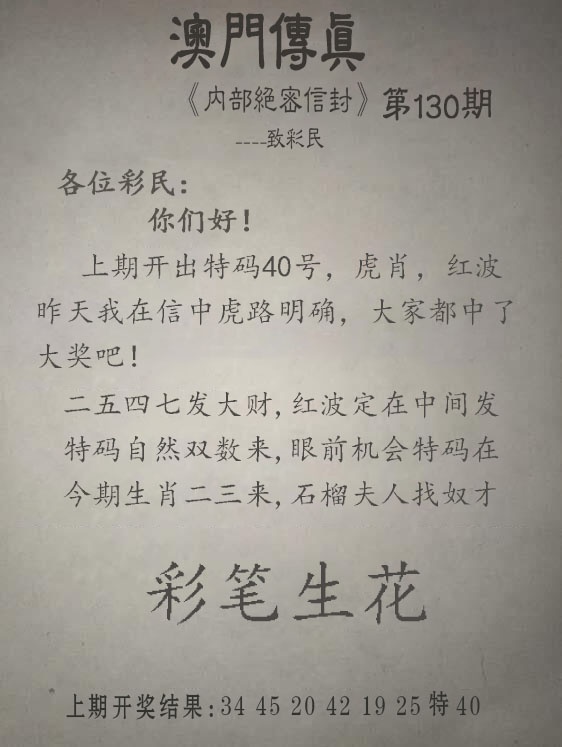 澳門傳眞
《内部絕密信封》第130期
----致彩民
各位彩民：
你们好！
上期开出特码40号，虎肖，红波
昨天我在信中虎路明确，大家都中了
大奖吧！
二五四七发大财,红波定在中间发
特码自然双数来,眼前机会特码在
今期生肖二三来,石榴夫人找奴才
彩笔生花
上期开奖结果:34 45 20 42 19 25特40